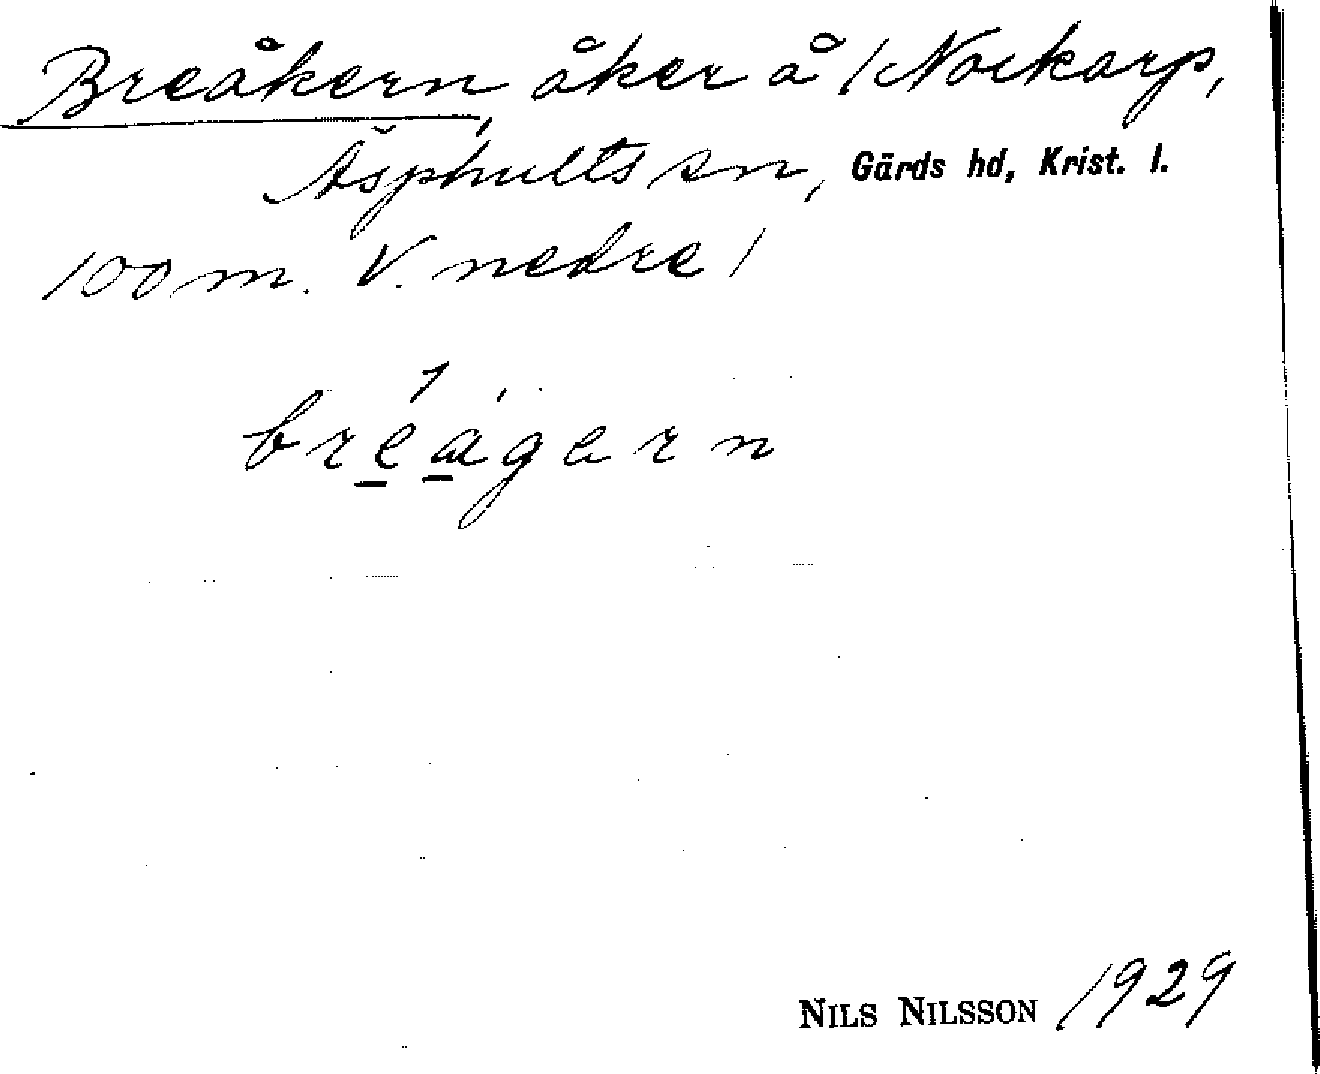 Breåkern, åker å 1 Nockarp,
Äsphults sn, Gärds hd, Krist. l.
100 m. V. nedre 1
breagern
NILS NILSSON 1929